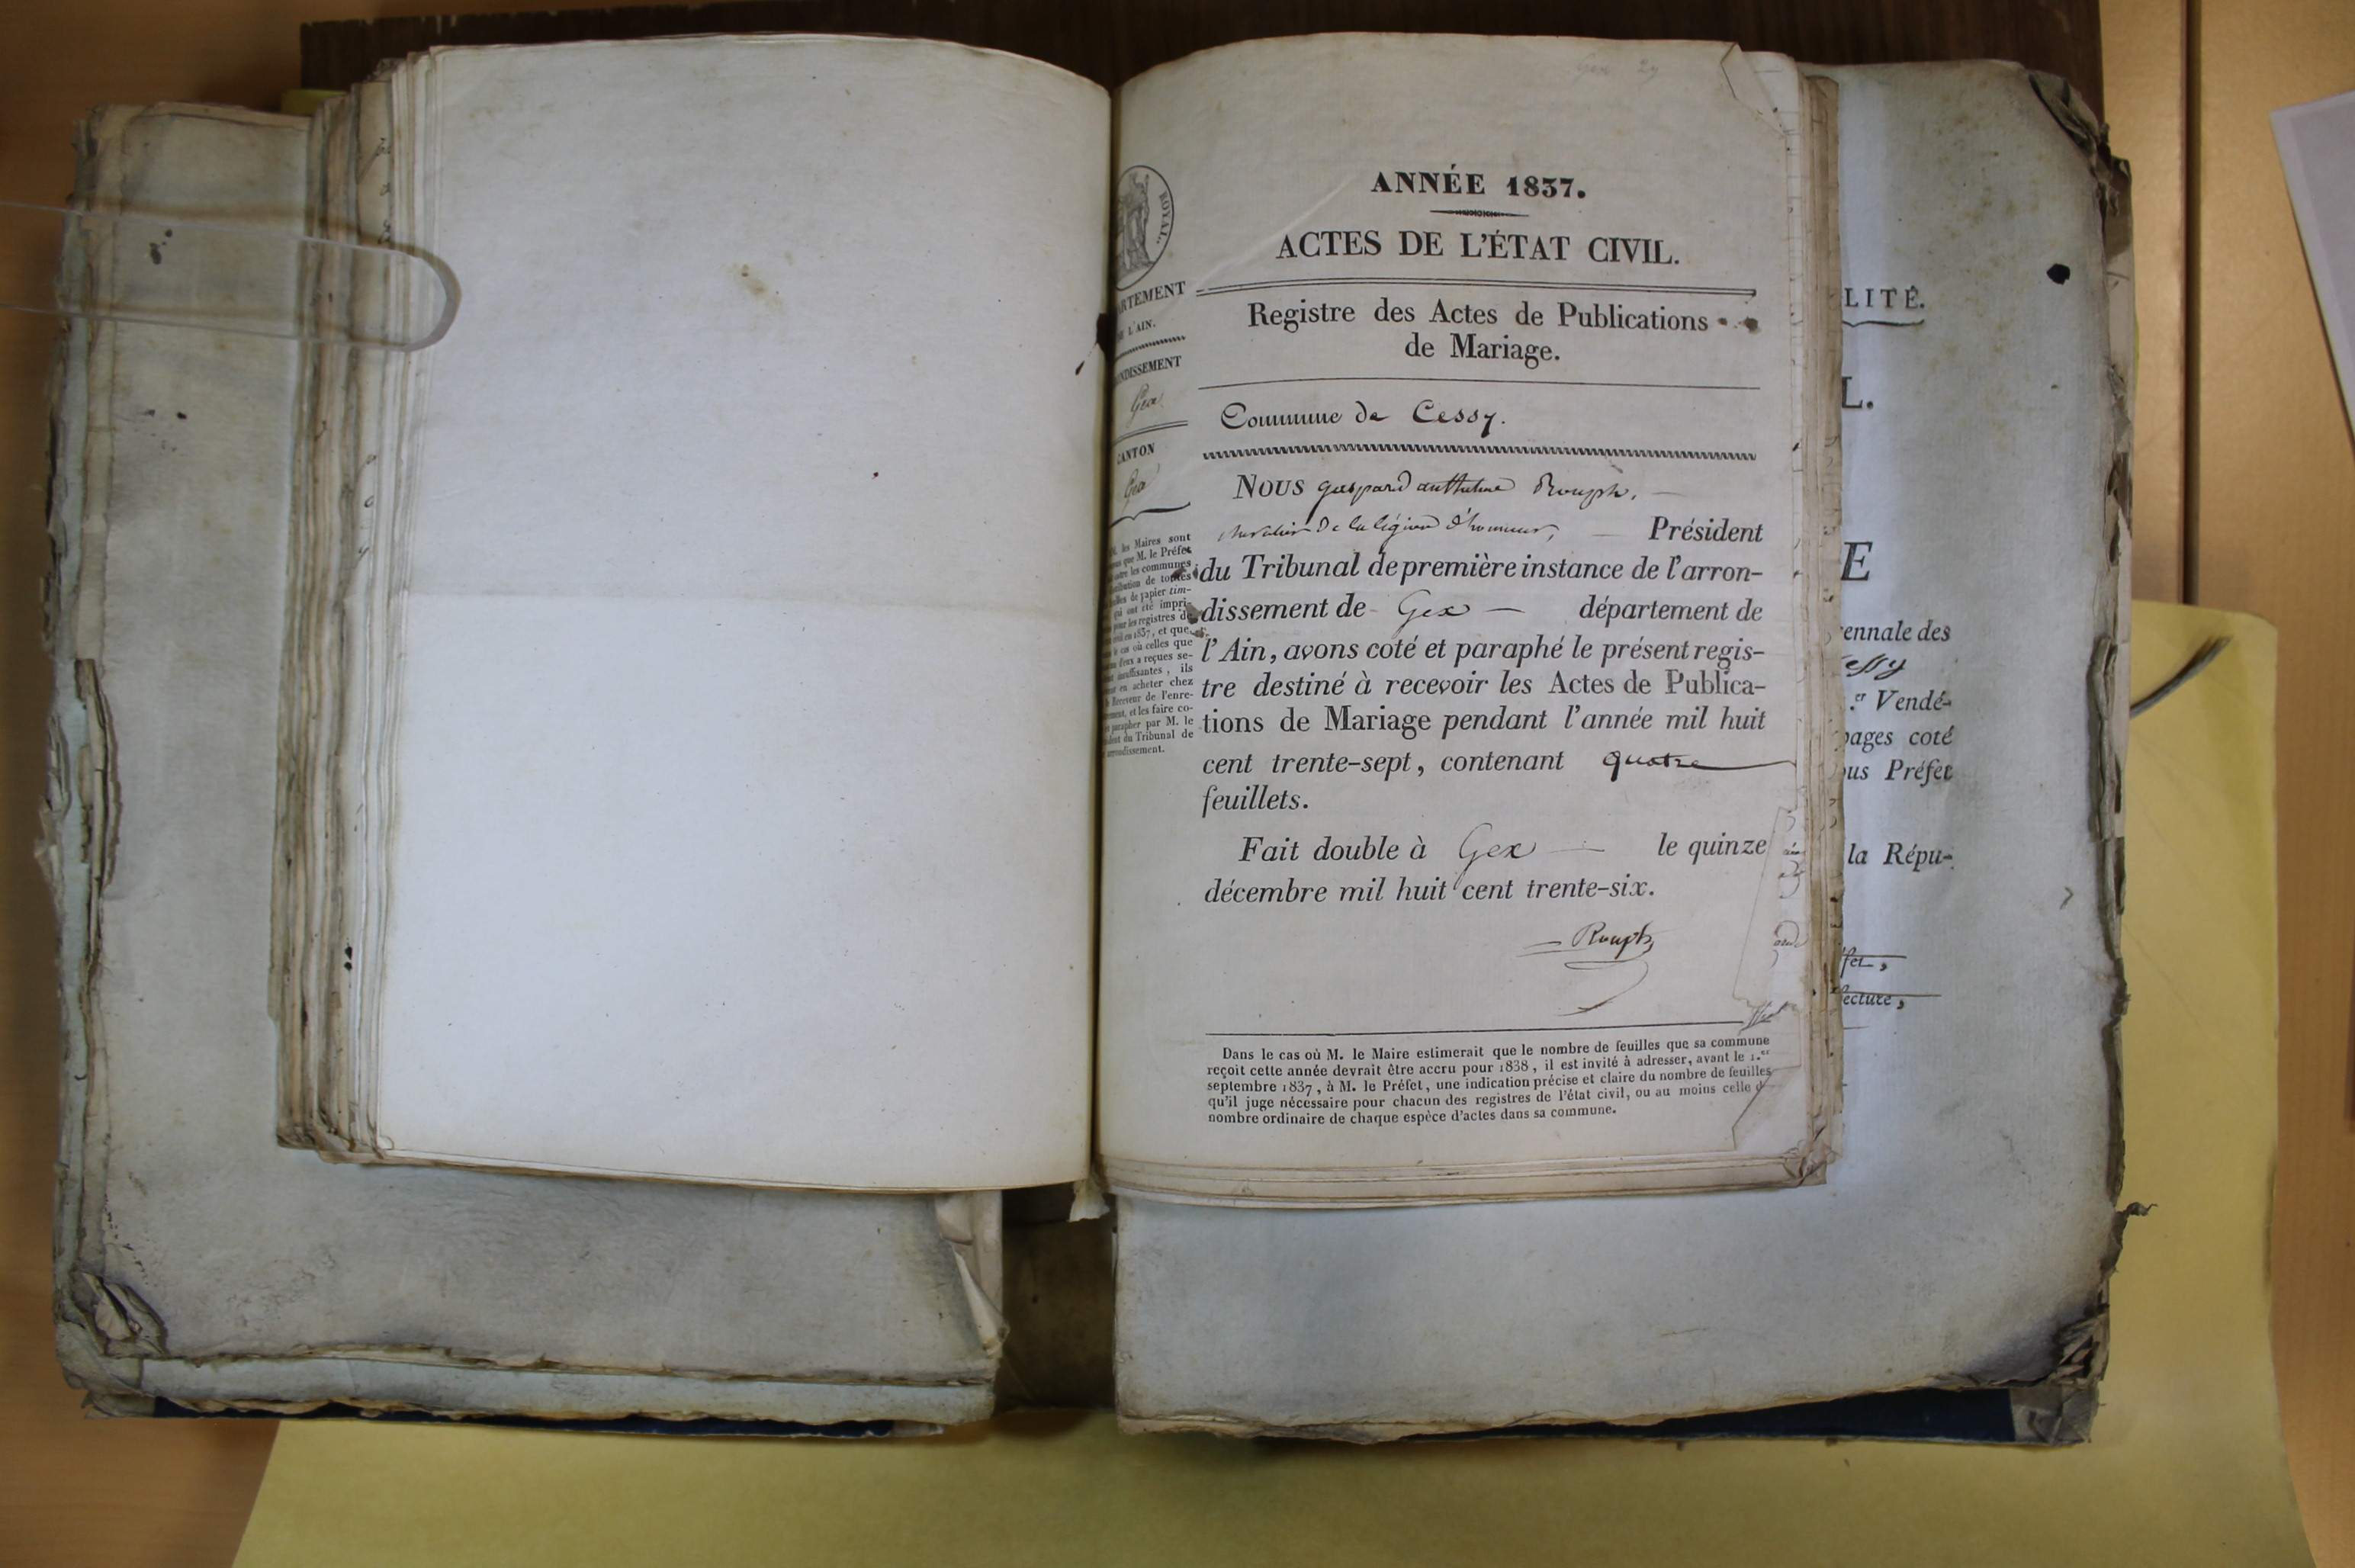 ANNÉE 1837.
ACTES DE L'ÉTAT CIVIL.
Registre des Actes de Publications
de Mariage.
Commune de Cessy.
Nous gaspard anthelme Rouph,
chevalier de la légion d'honneur, Président
du Tribunal de première instance de l'arron-
dissement de Gex département de
l'Ain, avons coté et paraphé le présent regis-
tre destiné à recevoir les Actes de Publica-
tions de Mariage pendant l'année mil huit
cent trente-sept, contenant quatre
feuillets.
Fait double à Gex le quinze
décembre mil huit cent trente-six.
Rouph
Dans le cas où M. le Maire estimerait que le nombre de feuilles que sa commune
reçoit cette année devrait être accru pour 1838, il est invité à adresser, avant le 1.er
septembre 1837, à M. le Préfet, une indication précise et claire du nombre de feuilles
qu'il juge nécessaire pour chacun des registres de l'état civil, ou au moins celle
nombre ordinaire de chaque espèce d'actes dans sa commune.
ROYAL.
ARTEMENT
L'AIN.
NDISSEMENT
Gex
CANTON
Gex
les Maires sont
que M. le Préfet
les communes
de toutes
de papier tim-
qui ont été impri-
pour les registres de
en 1837, et que
le cas où celles que
d'eux a reçues se-
insuffisantes, ils
en acheter chez
Receveur de l'enre-
et les faire co-
parapher par M. le
du Tribunal de
arrondissement.
LITÉ.
L.
E
ennale des
essy
.er Vendé-
pages coté
ous Préfet
la Répu-
fet,
ecture,